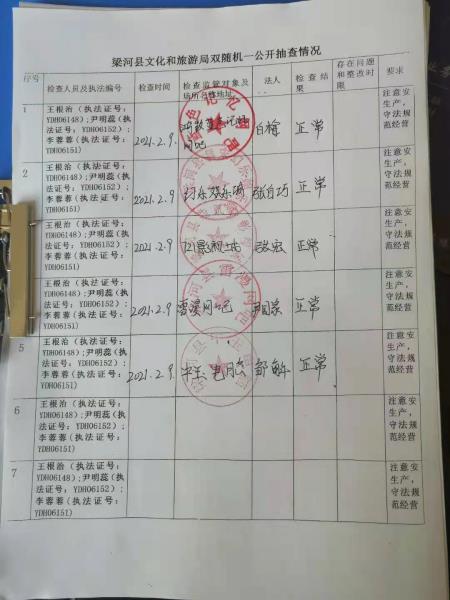 梁河县文化和旅游局双随机一公开抽查情况
序号 检查人员及执法编号 检查时间 检查监管对象及场所名称地址 法人 检查结果 存在问题和整改时限 要求
1 王根治(执法证号:
YDH06148);尹明蕊(执
法证号:YDH06152);
李蓉蓉(执法证号:
YDH06151)
2021.2.9.
网吧
正常
注意安
生产,
守法规
范经营
2 王根治(执法证号:
YDH06148);尹明蕊(执
法证号:YDH06152);
李蓉蓉(执法证号:
YDH06151)
2021.2.9
娱乐场
正常
注意安
生产,
守法规
范经营
王根治(执法证号:
YDH06148);尹明蕊(执
法证号:YDH06152);
李蓉蓉(执法证号:
YDH06151)
2021.2.9
正常
注意安
生产,
守法规
范经营
王根治(执法证号:
YDH06148);尹明蕊(执
法证号:YDH06152);
李蓉蓉(执法证号:
YDH06151)
2021.2.9
网吧
正常
注意安
生产,
守法规
范经营
5 王根治(执法证号:
YDH06148);尹明蕊(执
法证号:YDH06152);
李蓉蓉(执法证号:
YDH06151)
2021.2.9.
正常
注意安
生产,
守法规
范经营
6 王根治(执法证号:
YDH06148);尹明蕊(执
法证号:YDH06152);
李蓉蓉(执法证号:
YDH06151)
注意安
生产,
守法规
范经营
7 王根治(执法证号:
YDH06148);尹明蕊(执
法证号:YDH06152);
李蓉蓉(执法证号:
YDH06151)
注意安
生产,
守法规
范经营